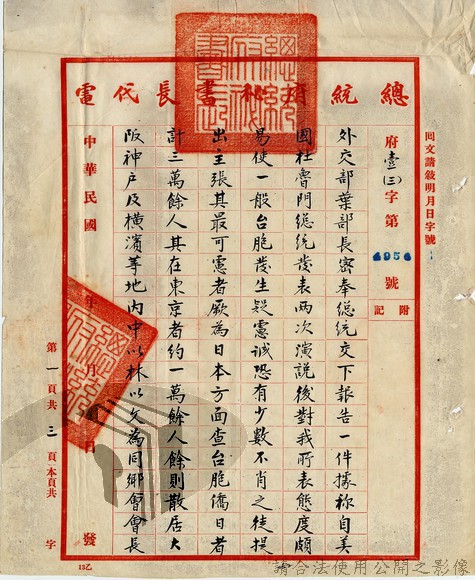 總統府秘書長代電
回文請敘明月日字號
府壹(三)字第 號
附記
外交部葉部長密奉總統交下報告一件據称自美
國杜魯門總統發表兩次演說後對我所表態度頗
易使一般台胞發生疑慮誠恐有少數不肖之徒提
出主張其最可慮者厥為日本方面查台胞僑日者
計三萬餘人其在東京者約一萬餘人餘則散居大
阪神戶及橫濱等地內中以林以文為同鄉會會長
中華民國 年 月 日 發
第一頁共三頁本頁共 字
請合法使用公開之影像